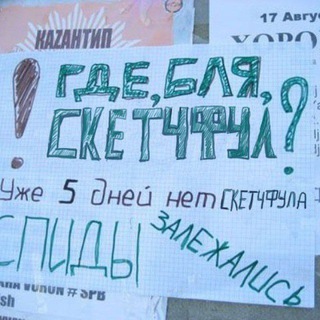 КАЗАНТИП
17 Авгус
! ГДЕ, БЛЯ,
СКЕТЧФУЛ?
Уже 5 дней нет СКЕТЧФУЛА
СПИДЫ
ЗАЛЕЖАЛИСЬ
# SPB
sh